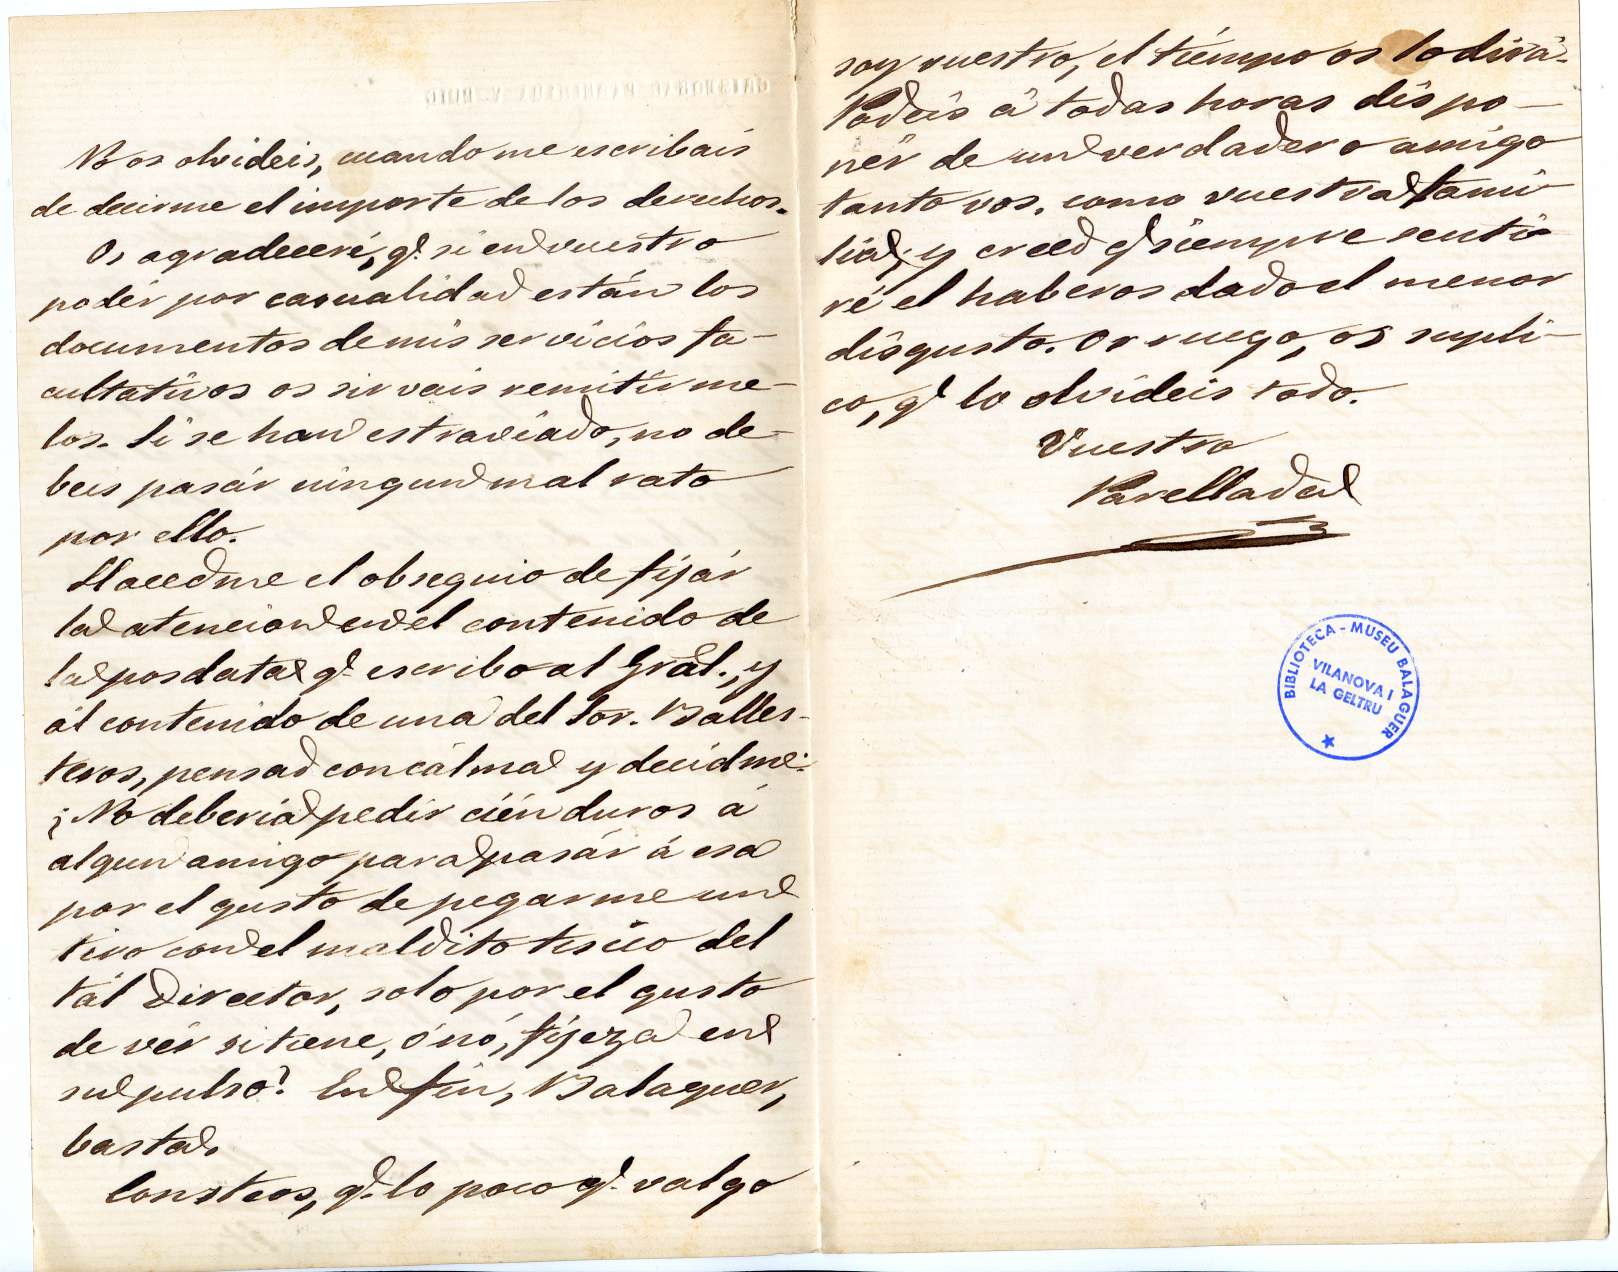 No os olvideis, cuando me escribais
de decirme el importe de los derechos.
Os agradeceré, q.e si en vuestro
podér por casualidad están los
documentos de mis servicios fa-
cultativos os sirvais remitírme-
los. Si se han estraviado, no de-
beis pasár ningun mal rato
por ello.
Hacedme el obsequio de fijár
la atencion en el contenido de
la posdata q.e escribo al Gràl., y
ál contenido de una del Sor. Balles-
teros, pensad con cálma y decidme:
¿No deberia pedir cién duros á
algun amigo para pasár á esa
por el gusto de pegarme un
tiro con el maldito tísico del
tál Director, solo por el gusto
de vér si tiene, ó nó, fijeza en
su pulso? En fin, Balaguer,
basta.
Consteos, q.e lo poco q.e valgo
soy vuestro, el tiempo os lo dirá.
Podeis á todas horas dispo-
nér de un verdadero amigo
tanto vos, como vuestra fami-
lia, y creed q.e siempre senti-
ré el haberos dado el menor
disgusto. Os ruego, os supli-
co, q.e lo olvideis todo.
Vuestro
Parellada
BIBLIOTECA - MUSEU BALAGUER
VILANOVA I
LA GELTRU